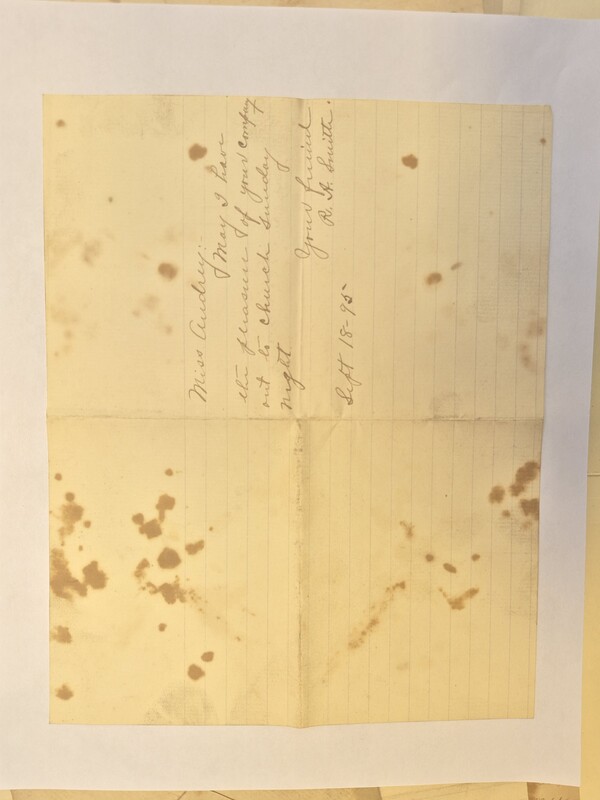 Miss Audrey:
May I have
the pleasure of your company
out to church Sunday
night
Your friend
R. A. Smith.
Sept 18-95